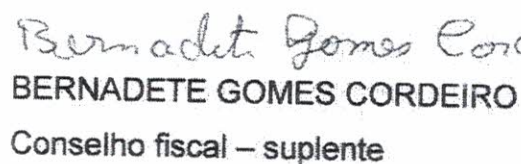 Bernadete Gomes Cor
BERNADETE GOMES CORDEIRO
Conselho fiscal – suplente